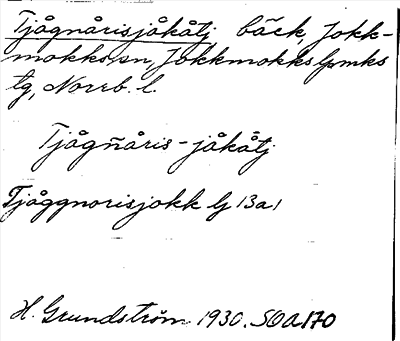 Tjågnårisjåkåtj bäck, Jokk-
mokks sn, Jokkmokks lpmks
tg, Norrb. l.
Tjågñåris-jåkåtj
Tjåggnorisjokk lj 13a1
H. Grundström 1930. SOA170